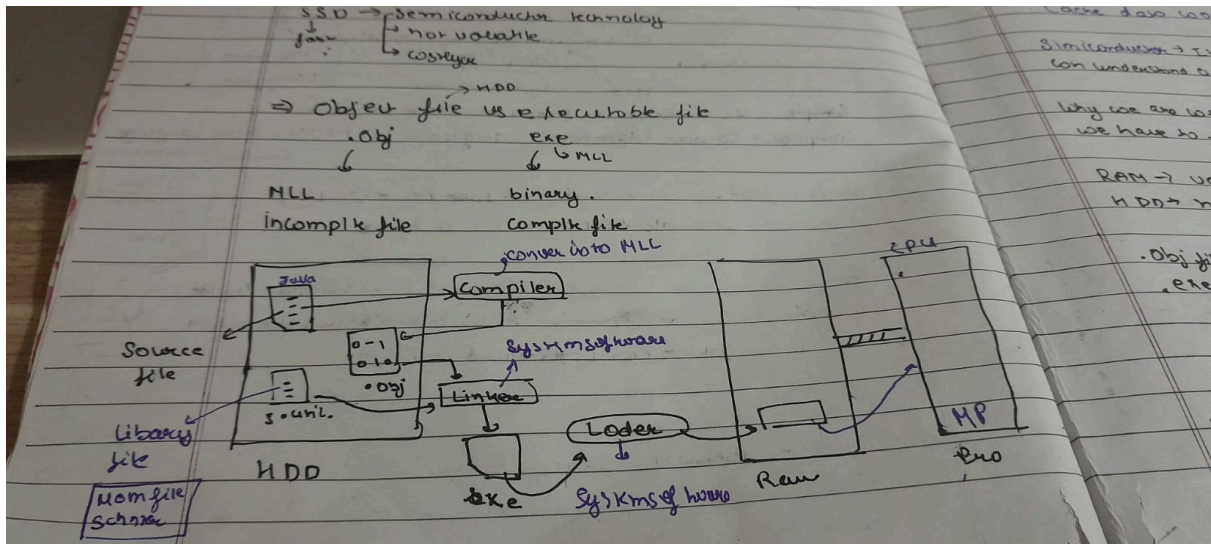 SSD → Semiconductor technology
→ not volatile
→ costlyer
→ HDD
⇒ Objeu file vs executable file
.obj exe
↳ MLL
MLL binary.
incomplte file complte file
conver into MLL
Java
Compiler
CPU
Source
file
0-1
0-10
.obj
Systemsofware
Linker
Libary
file
Loder
MP
HDD
exe
Systemsofware
Ram
Pro
Cache data
Simiconductor →
can understand
Why we are
we have to
RAM →
HDD →
.obj
.exe